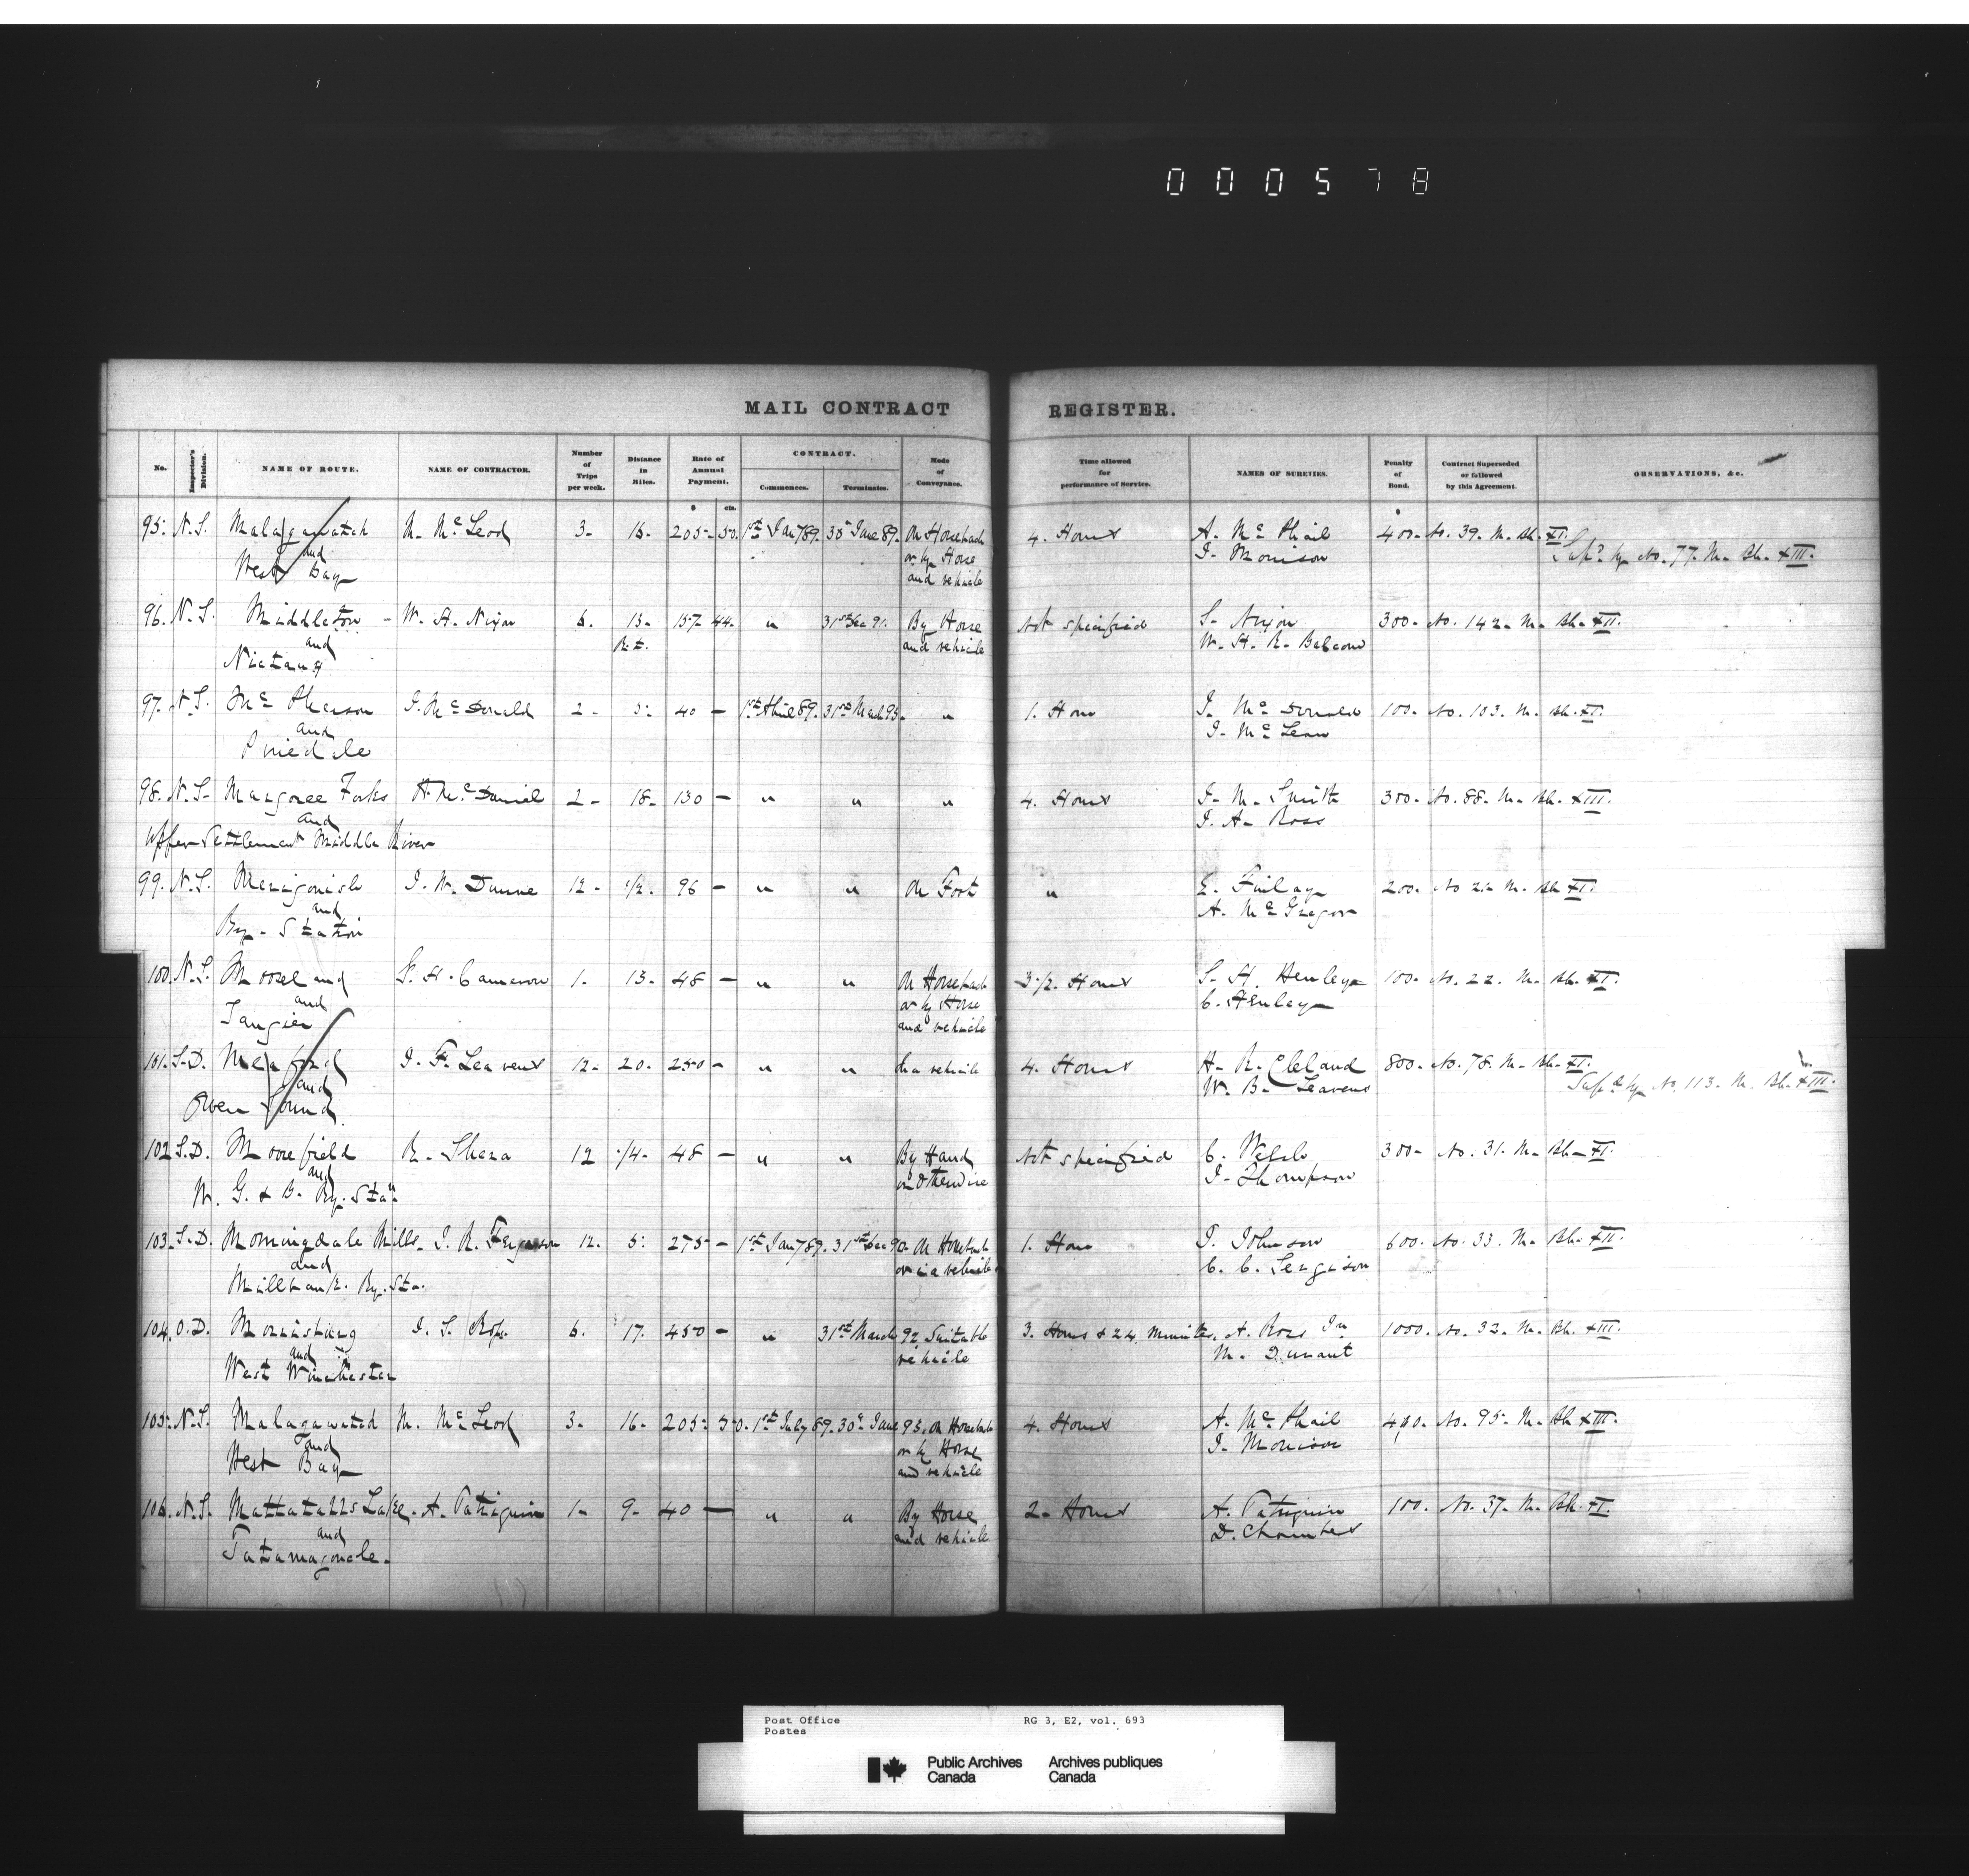 000578
MAIL CONTRACT REGISTER.
No. Inspector's Division. NAME OF ROUTE. NAME OF CONTRACTOR. Number of Trips per week. Distance in Miles. Rate of Annual Payment. CONTRACT. Commences. Terminates. Mode of Conveyance. Time allowed for performance of Service. NAMES OF SURETIES. Penalty of Bond. Contract Superseded or followed by this Agreement. OBSERVATIONS, &c.
$ cts. $
95. N.S. Malagawatch M. Mc Leod 3- 205- 50. 1st Jany 89. 30th June 89. On Horseback 4. Hours A. Mc Phail 400- No. 39. M. Bk. XI.
and or by Horse J. Morrison Supd by No. 77. M. Bk. XIII.
West Bay and vehicle
96. N.S. Middleton - W. A. Nixon 6. 13- 157 44. " 31st Dec 91. By Horse Not specified S. Nixon 300- No. 142- M- Bk- XII.
and R.t. and vehicle W. H. R. Balcom
Nictaux
97. N.S. Mc Pherson J. Mc Donald 2- 5- 40 - 1st April 89. 31st March 93. " 1. Hour J. Mc Donald 100- No. 103. M- Bk. XI.
and J- Mc Lean
Pinedale
98. N.S- Margaree Forks H. Mc Daniel 2- 18- 130 - " " " 4. Hours J- M. Smith 300- No. 88- M- Bk. XIII.
and J. A- Ross
Upper Settlement Middle River
99. N.S. Merigonish J. W. Dunne 12- 1/2. 96 - " " On Foot " E. Finlay 200. No 21- M- Bk XI.
and A. Mc Gregor
Ry- Station
100. N.S. Mooseland G. H. Cameron 1. 13- 48 - " " On Horseback 3 1/2. Hours S. H. Henley 100- No. 22. M- Bk- XI.
and or by Horse C. Henley
Tangier and vehicle
101. S.D. Meaford J. F. Leavens 12- 20. 250- " " In a vehicle 4. Hours H- R. Cleland 800- No. 78. M- Bk- XI.
and W. B- Leavens Supd by No. 113. M. Bk. XIII.
Owen Sound
102 S.D. Moorefield R- Shera 12 1/4- 48 - " " By Hand Not specified C. Welch 300- No. 31. M- Bk- XI.
and or otherwise J- Thompson
W. G. & B. Ry. Stan
103. S.D. Morningdale Mills. J. R. Ferguson 12. 5. 275- - 1st Jany 89. 31st Dec 90. On Horseback 1. Hour T. Johnson 600- No. 33. M- Bk- XII.
and or in a vehicle C. C.
Millbank. Ry. Sta.
104. O.D. Morrisburg J. S. Ross. 6. 17. 450 - " 31st March 92. Suitable 3. Hours & 24 minutes. A. Ross Jr 1000- No. 32. M- Bk. XIII.
and vehicle M. Durant
West Winchester
105. N.S. Malagawatch M. Mc Leod 3- 16- 205- 50. 1st July 89. 30th June 93. On Horseback 4. Hours A. Mc Phail 400. No. 95- M- Bk XIII.
and or by Horse J. Morrison
West Bay and vehicle
106. N.S. Mattatalls Lake. A. Patriquin 1- 9- 40 - " " By Horse 2- Hours A. Patriquin 100. No. 37. M- Bk. XI.
and and vehicle D. Chambers
Tatamagouche.
Post Office RG 3, E2, vol. 693
Postes
Public Archives Archives publiques
Canada Canada